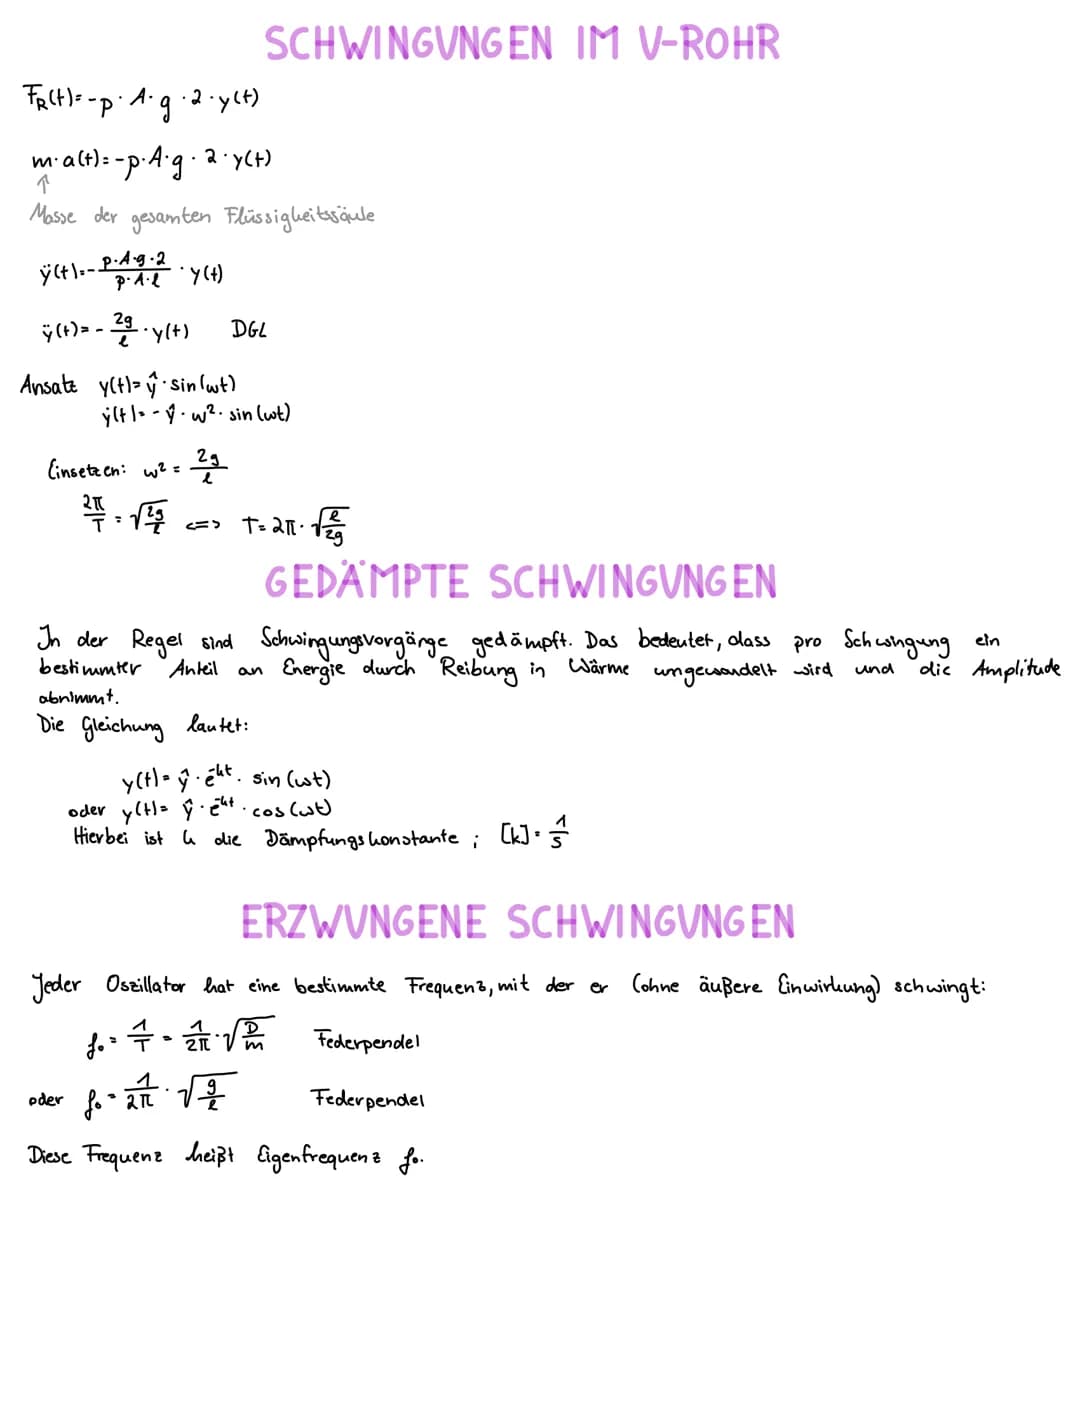 SCHWINGUNGEN IM U-ROHR
F_R(t)=-p·A·g·2·y(t)
m·a(t)=-p·A·g·2·y(t)
↑
Masse der gesamten Flüssigkeitssäule
ÿ(t)=-\frac{p·A·g·2}{p·A·l}·y(t)
ÿ(t)=-\frac{2g}{l}·y(t) DGL
Ansatz y(t)=ŷ·sin(ωt)
ÿ(t)=-ŷ·ω²·sin(ωt)
Einsetzen: ω²=\frac{2g}{l}
\frac{2π}{T}=\sqrt{\frac{2g}{l}} <=> T=2π·\sqrt{\frac{l}{2g}}
GEDÄMPTE SCHWINGUNGEN
In der Regel sind Schwingungsvorgärge gedämpft. Das bedeutet, dass pro Schwingung ein
bestimmter Anteil an Energie durch Reibung in Wärme umgewandelt wird und die Amplitude
abnimmt.
Die Gleichung lautet:
y(t)=ŷ·e^{-kt}·sin(ωt)
oder y(t)=ŷ·e^{-kt}·cos(ωt)
Hierbei ist k die Dämpfungskonstante; [k]=\frac{1}{s}
ERZWUNGENE SCHWINGUNGEN
Jeder Oszillator hat eine bestimmte Frequenz, mit der er (ohne äußere Einwirkung) schwingt:
f₀=\frac{1}{T}=\frac{1}{2π}·\sqrt{\frac{D}{m}} Federpendel
oder f₀=\frac{1}{2π}·\sqrt{\frac{g}{l}} Federpendel
Diese Frequenz heißt Eigenfrequenz f₀.